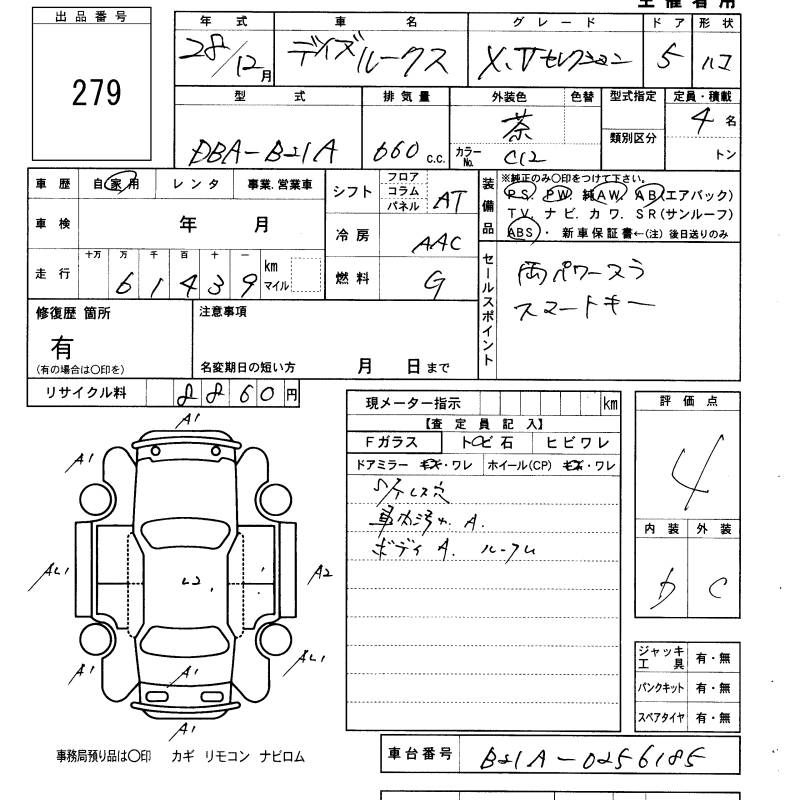 主催者用
出品番号
279
年式 車名 グレード ドア 形状
28/12月 デイズルークス X.Vセレクション 5 ハコ
型式 排気量 外装色 色替 型式指定 定員・積載
DBA-B21A 660 c.c. 茶 類別区分 4名
カラーNo. C12 トン
車歴 自家用 レンタ 事業.営業車
車検 年 月
走行 十万 万 千 百 十 一 km マイル
6 1 4 3 9
シフト フロア コラム パネル AT
冷房 AAC
燃料 G
装備品 ※純正のみ〇印をつけて下さい。
PS. PW. 純AW. AB(エアバック)
TV. ナビ. カワ. SR(サンルーフ)
ABS・ 新車保証書←(注) 後日送りのみ
セールスポイント
両パワースラ
スマートキー
修復歴 箇所
有
(有の場合は〇印を)
注意事項
名変期日の短い方 月 日まで
リサイクル料 8860円
現メーター指示 km
【査定員記入】
Fガラス トビ石 ヒビワレ
ドアミラー キズ・ワレ ホイール(CP) キズ・ワレ
車内汚れ A.
ボディ A. ルーフム
評価点
4
内装 外装
D C
A1
A1 A1
AL1 A2
A1 AL1
A1
A1
ジャッキ工具 有・無
パンクキット 有・無
スペアタイヤ 有・無
事務局預り品は〇印 カギ リモコン ナビロム
車台番号 B21A-0256185